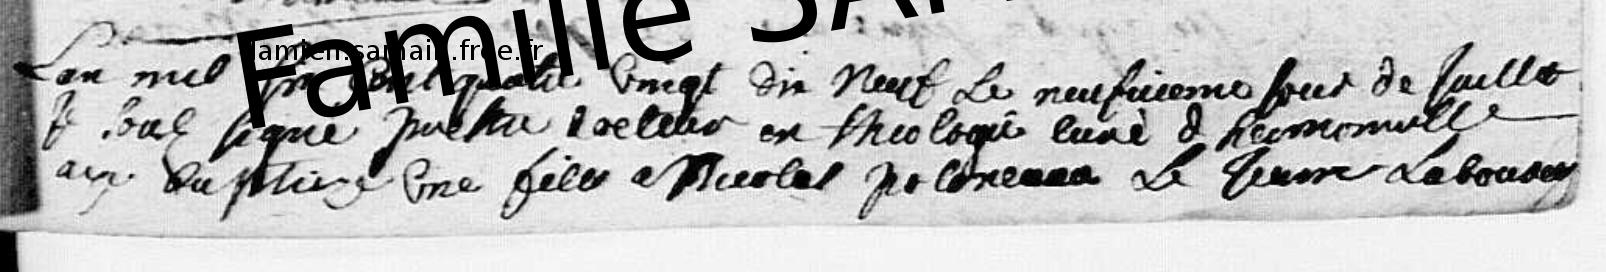 Famille SAM
damien.samain.free.fr
Lan mil six cent quatre vingt dix neuf Le neufvieme jour de Juillet
Je soub signé prestre docteur en theologie curé d hermonville
ay baptisé une fille a Nicolas Le Jeune Laboureur